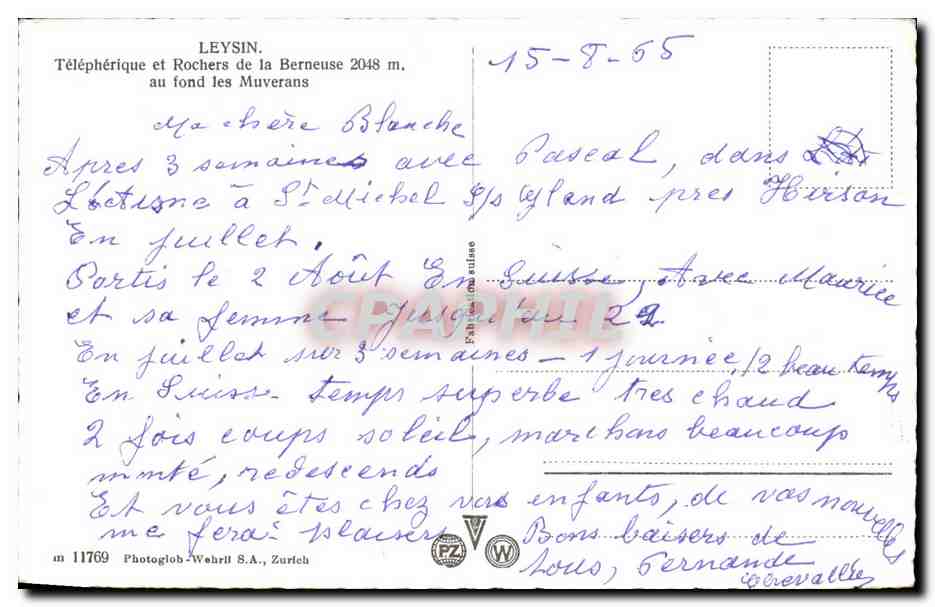 LEYSIN.
Téléphérique et Rochers de la Berneuse 2048 m.
au fond les Muverans
15-8-65
Ma chère Blanche
Apres 3 semaines avec Pascal, dans
à St Michel S/s Gland pres Hirson
En juillet.
Partis le 2 Août En Suisse, Avec Maurice
et sa femme jusqu'au 22
En juillet sur 3 semaines - 1 journée 1/2 beau temps
En Suisse temps superbe tres chaud
2 fois coups soleil, marchons beaucoup
monté, redescends
Et vous êtes chez vos enfants, de vos nouvelles
me fera plaisir Bons baisers de
tous, Fernande
Fabrication suisse
CRAPHIL
m 11769 Photoglob-Wehrli S.A., Zurich
PZ W